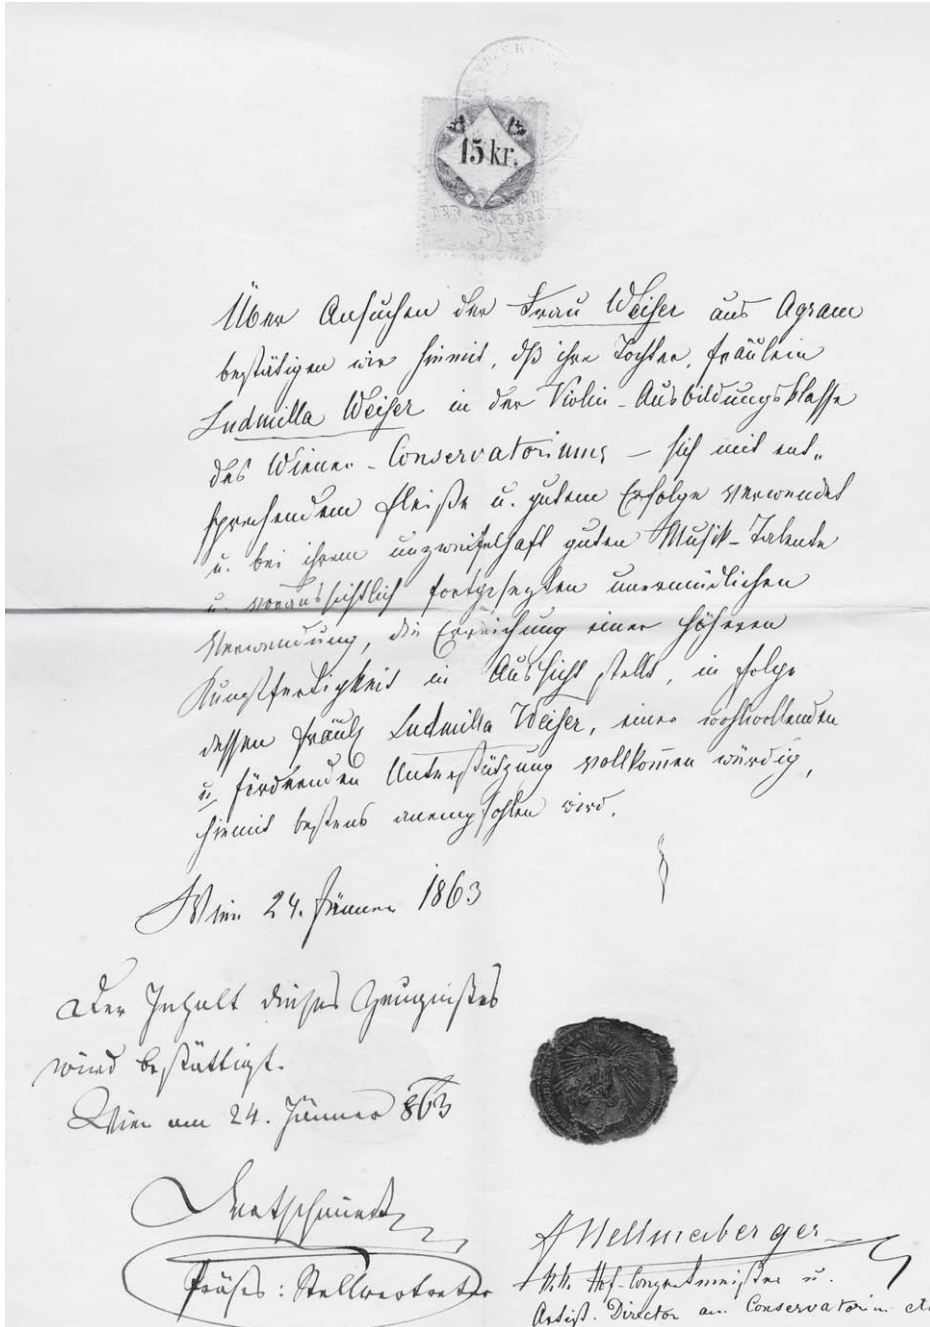 15 kr.
Über Ansuchen der Frau Weiser aus Agram
bestätigen wir hiemit, dß ihre Tochter, Fräulein
Ludmilla Weiser in der Violin-Ausbildungsklasse
des Wiener-Conservatoriums – sich mit ent„
sprechendem Fleiße u. gutem Erfolge verwendet
u. bei ihrem unzweifelhaft guten Musik-Talente
u. voraussichtlich fortgesetzten unermüdlichen
Verwendung, die Erreichung einer höheren
Kunstfertigkeit in Aussicht stellt, in Folge
dessen Ludmilla Weiser, einer wohlwollenden
u. fördernden Unterstützung vollkomen würdig,
hiemit bestens anempfohlen wird.
Wien 24. Jänner 1863
Der Inhalt dieses Zeugnißes
wird bestättigt.
Wien am 24. Jänner 863
Präses: Stellvertreter
J Hellmesberger
k.k. Hof-Conzertmeister u.
Artist. Director am Conservatorium etc